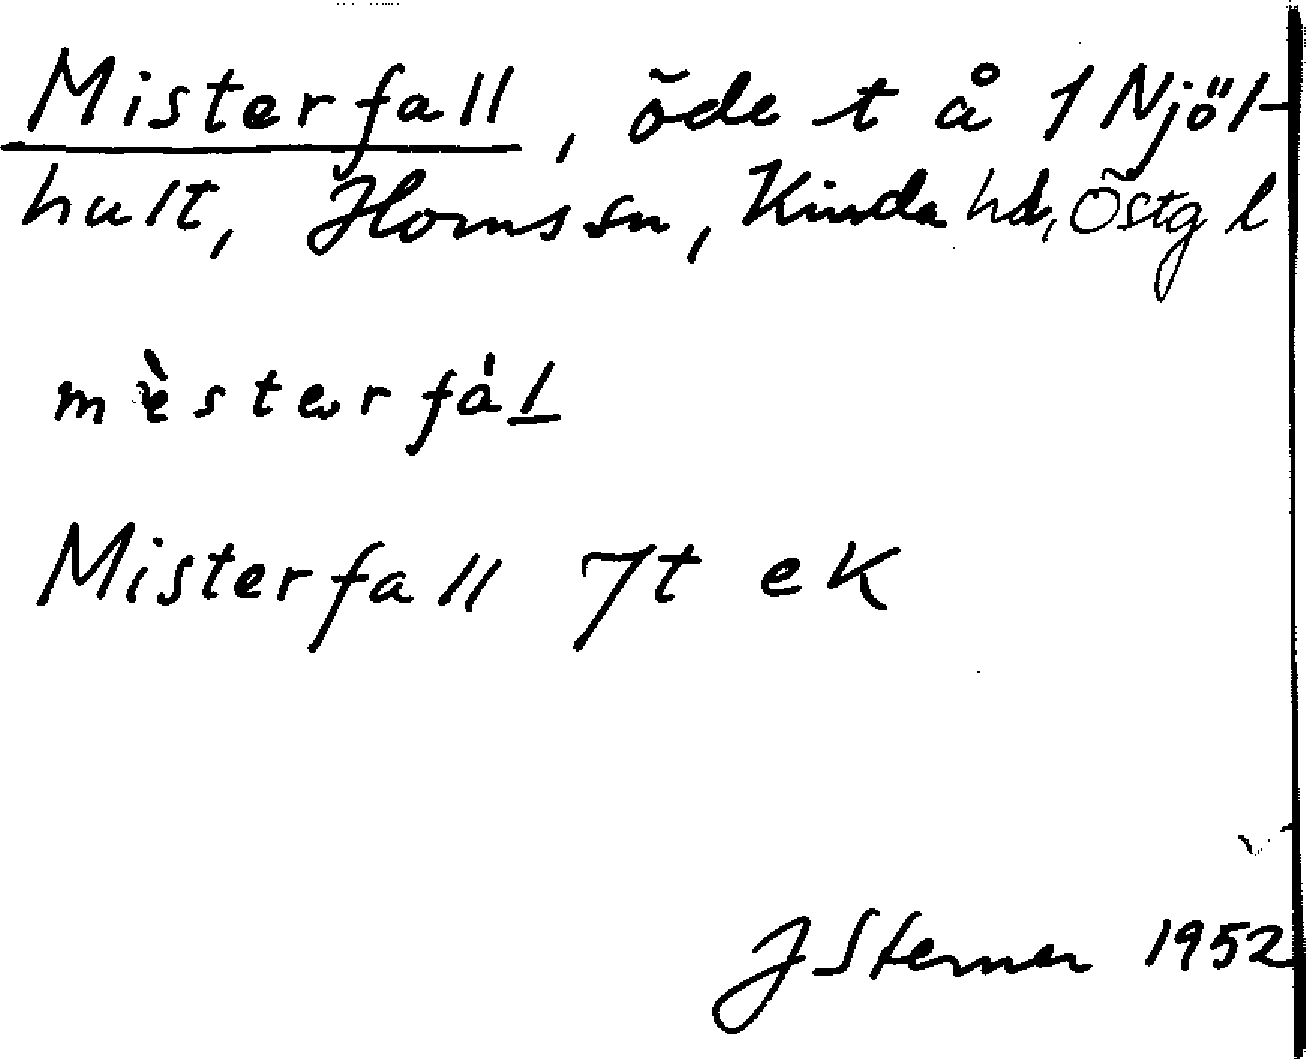 Misterfall, öde t å 1 Njöl-
hult, Horns sn, Kinda hd, Östg l
mèsterfáḻ
Misterfall Jt ek
J Sterner 1952